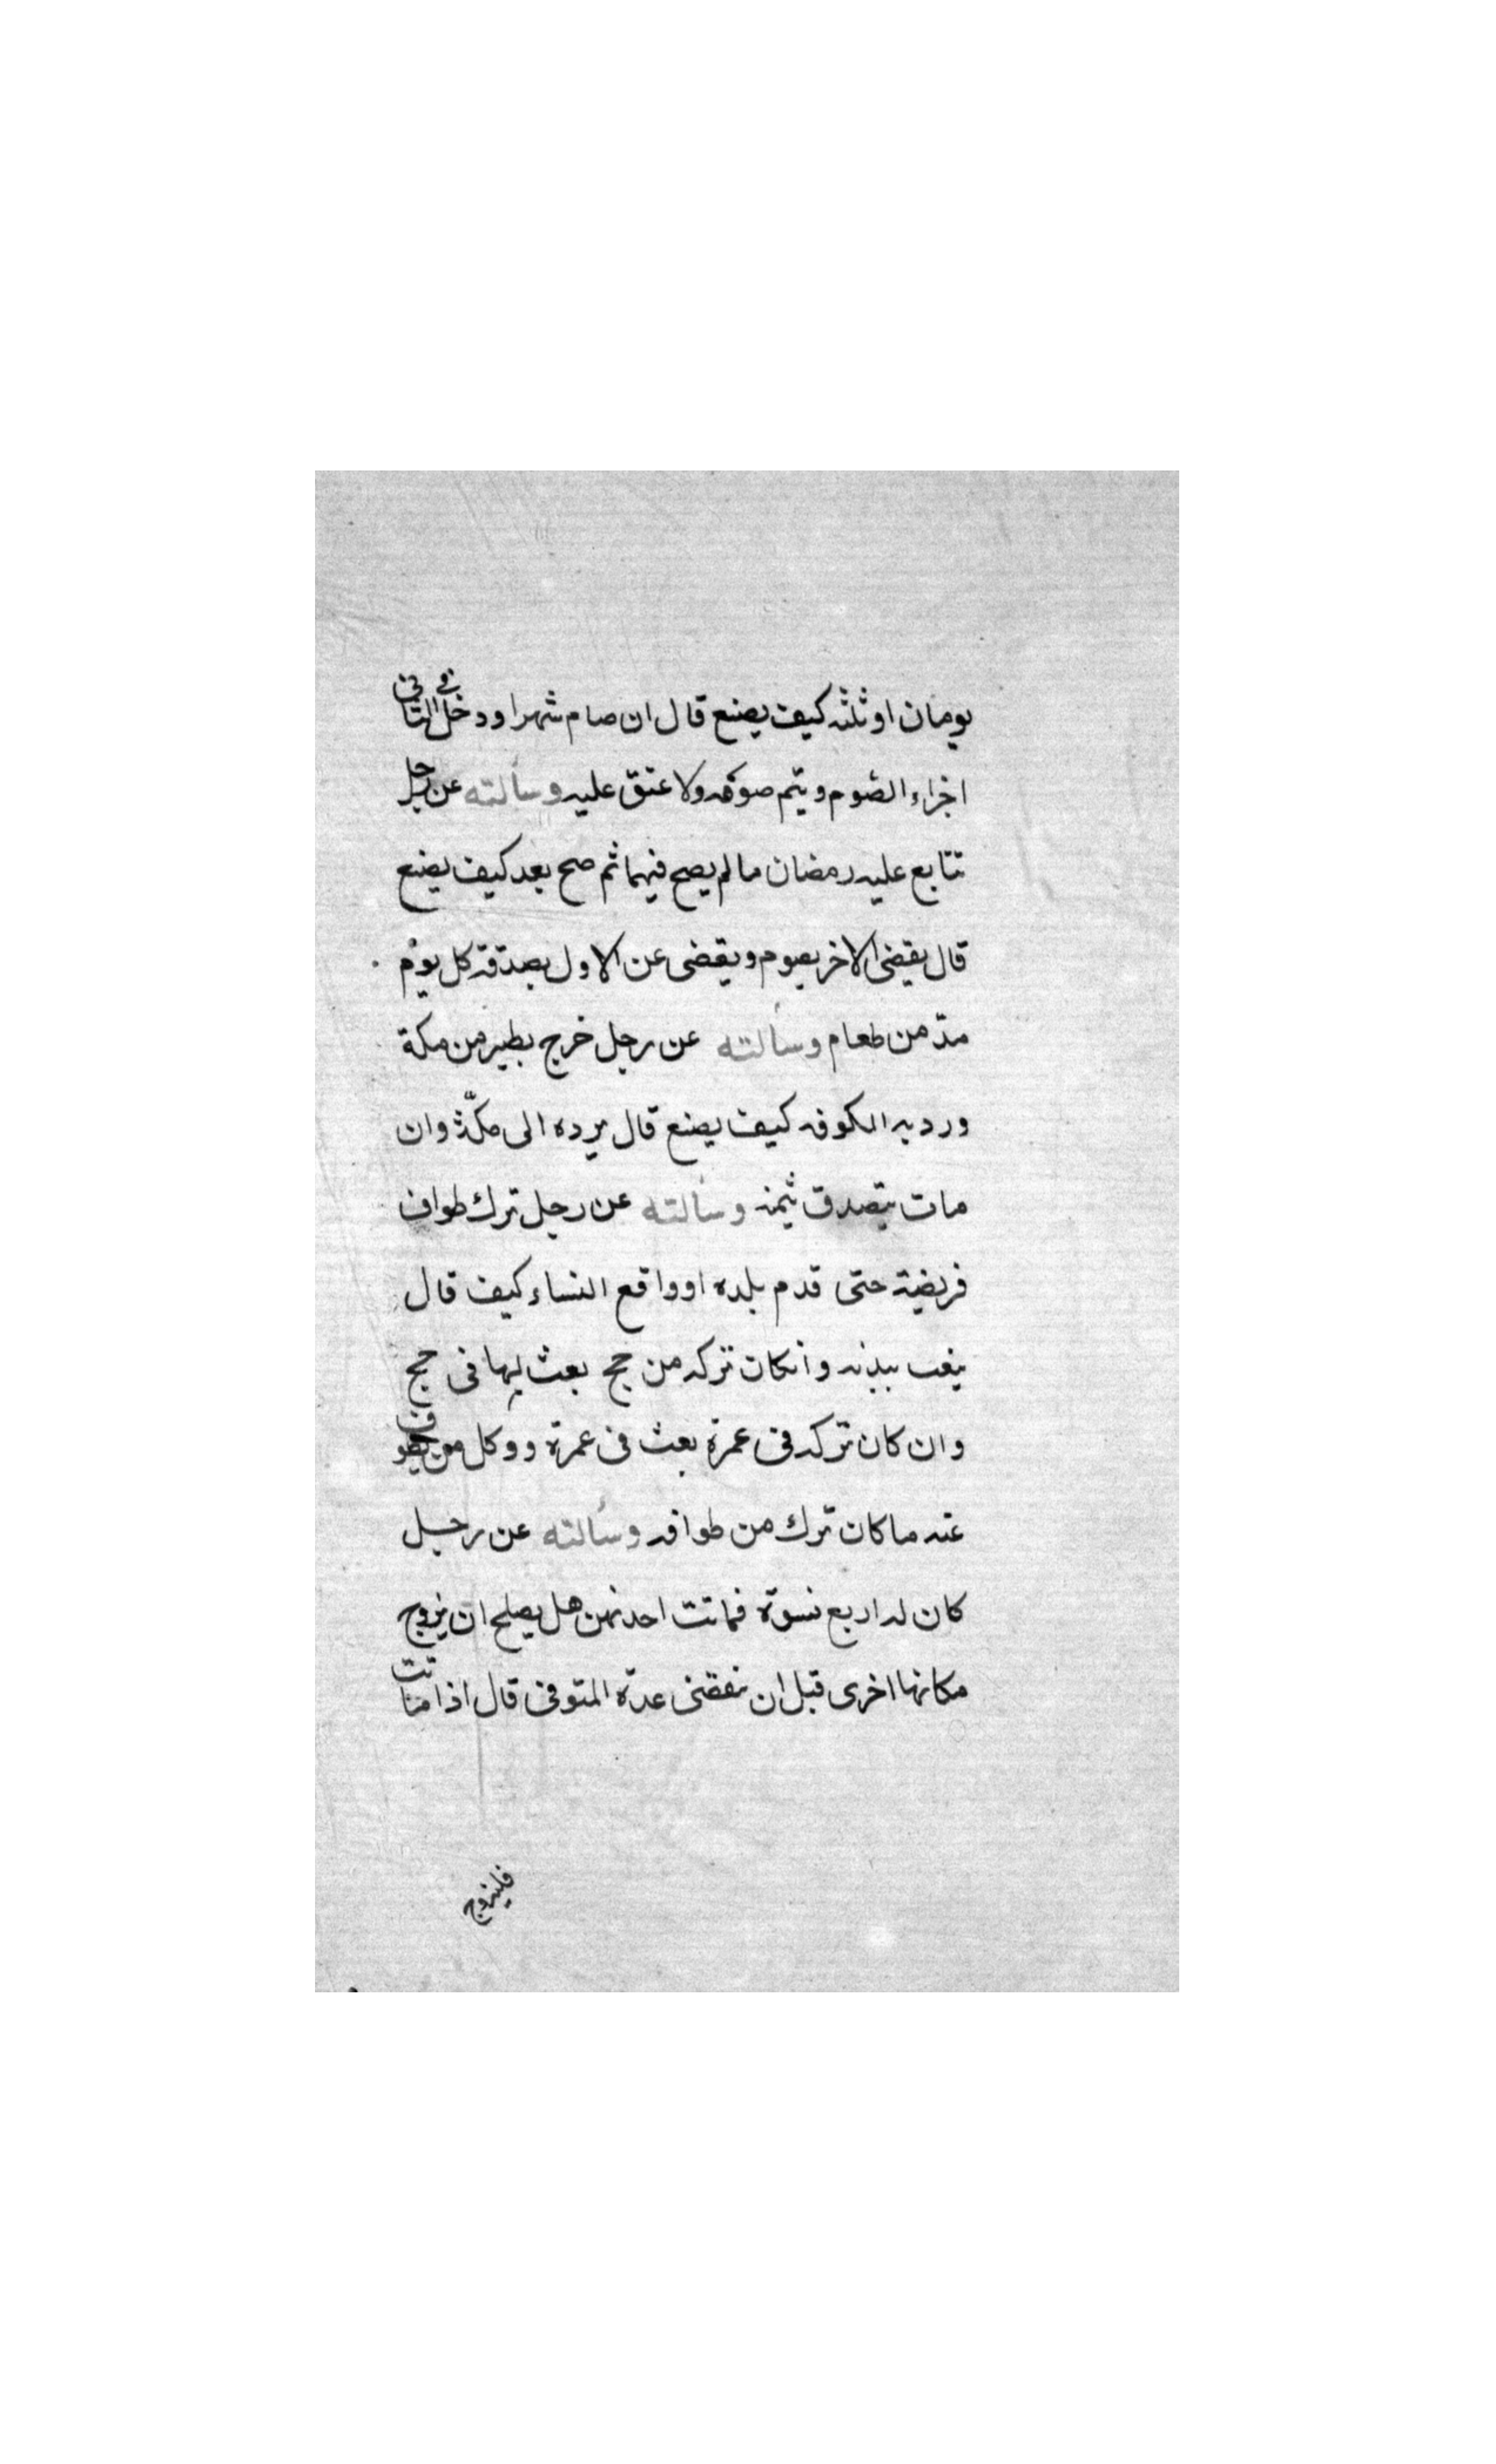 يومان او ثلثه كيف يصنع قال ان صام شهرا ودخل في الثاني
اجزاء الصوم ويتم صومه ولا عتق عليه وسألته عن رجل
تتابع عليه رمضان ما لم يصح فيهما ثم صح بعد كيف يصنع
قال يقضى الاخر بصوم ويقضى عن الاول بصدقة كل يوم
مدّ من طعام وسألته عن رجل خرج بطير من مكة
ورد به الكوفه كيف يصنع قال يرده الى مكّة وان
مات يتصدق بثمنه وسألته عن رجل ترك طواف
فريضة حتى قدم بلده او واقع النساء كيف قال
ببدنه وانكان تركه من حج بعث بها فى حج
وان كان تركه فى عمرة بعث فى عمرة ووكل من يطوف
عنه ما كان ترك من طوافه وسألته عن رجل
كان له اربع نسوة فماتت احدىهن هل يصلح ان يزوج
مكانها اخرى قبل ان تنقضى عدّة المتوفى قال اذا ماتت
فليزوج